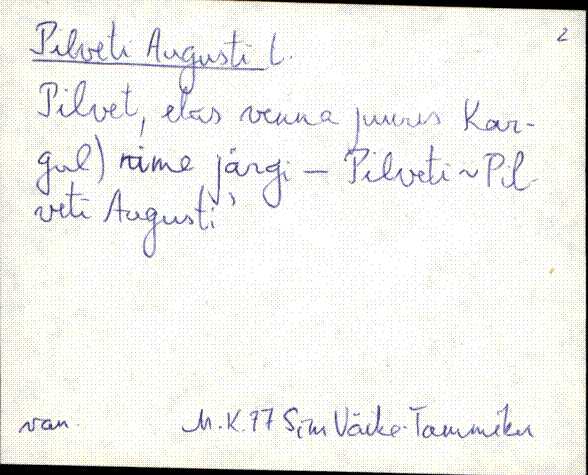 Pilveti Augusti t.
2
Pilvet, elas venna juures Kar-
gul) nime järgi – Pilveti ~ Pil-
veti Augusti’
van.
M.K.77 Sim Väike-Tammiku